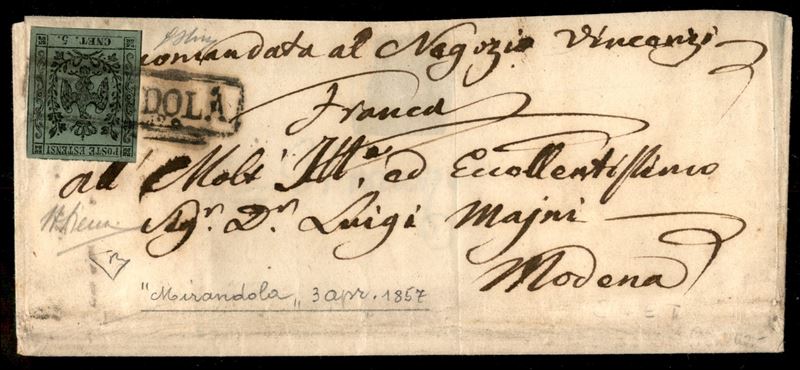 CNET. 5.
POSTE ESTENSI
DOLA
comandata al Negozio Vincenzi
Franca
all' Molt' Ill.e ed Eccellentissimo
Sig.r D.n Luigi Majni
Modena
"Mirandola" 3 apr. 1857